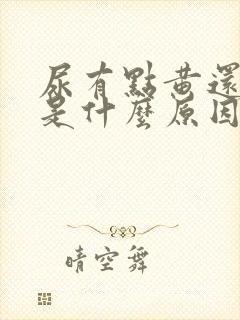 尿有點黃還
是什麼原因
晴空舞